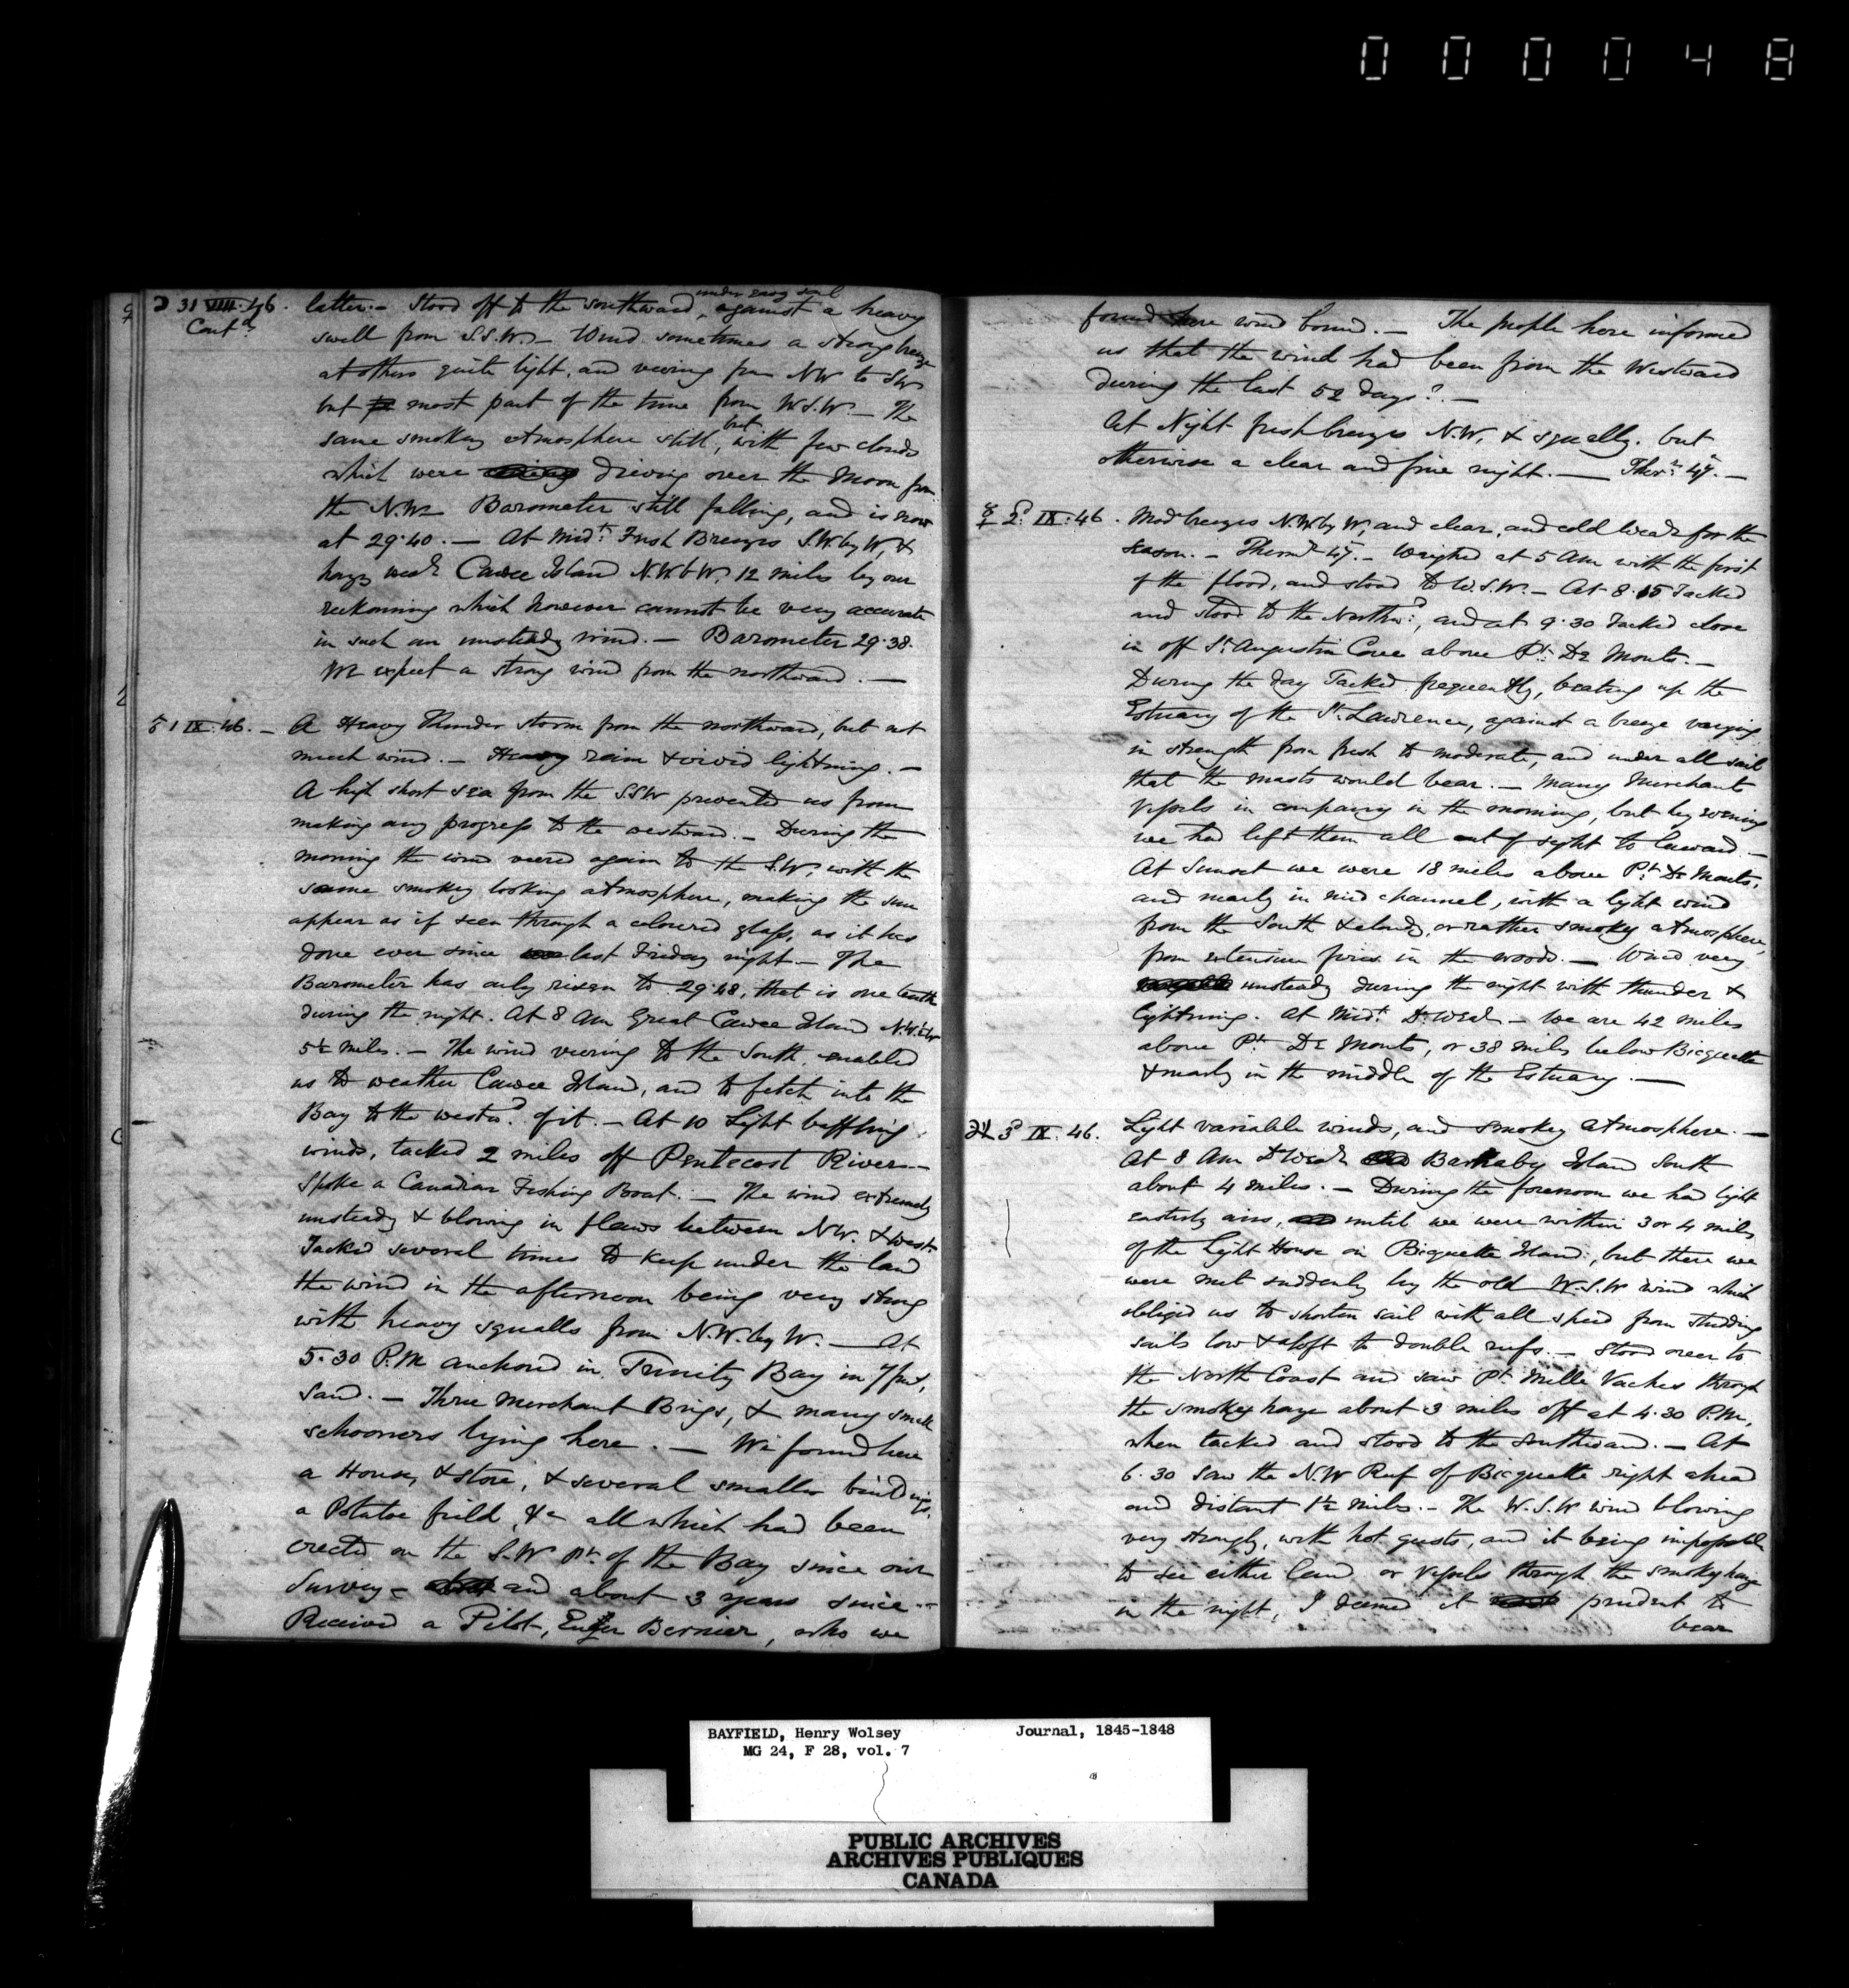 000048
☽ 31 VIII. 46. latter. – Stood off to the southward, under easy sail against a heavy
Cont.d swell from S.S.W. – Wind sometimes a strong breeze
at others quite light, and veering from NW to SW
but most part of the time from W.S.W. – The
same smokey atmosphere still, but with few clouds
which were driving over the Moon from
the N.W. Barometer still falling, and is now
at 29.40. – At Midt. Fresh Breezes S.W. by W, &
hazy wear. Cawee Island N.W.b W. 12 miles by our
reckonning which however cannot be very accurate
in such an unsteady wind. – Barometer 29.38.
We expect a strong wind from the northward. —
♂ 1 IX. 46. – A Heavy Thunder storm from the northward, but not
much wind. – Heavy rain & vivid lightning. –
A high short sea from the SSW prevented us from
making any progress to the westward. – During the
morning the wind veered again to the S.W, with the
same smokey looking atmosphere, making the sun
appear as if seen through a coloured glass, as it has
done ever since last Friday night – The
Barometer has only risen to 29.48, that is one tenth
during the night. At 8 Am Great Cawee Island
5½ miles. – The wind veering to the South, enabled
us to weather Cawee Island, and to fetch into the
Bay to the westwd. of it. – At 10 Light baffling
winds, tacked 2 miles off Pentecost River –
Spoke a Canadian Fishing Boat. – The wind extremely
unsteady & blowing in flaws between NW. & West.
Tacked several times to keep under the land
the wind in the afternoon being very strong
with heavy squalls from N.W. by W. — At
5.30 P.M anchored in Trinity Bay in 7 fms,
sand. – Three Merchant Brigs, & many small
schooners lying here. – We found here
a House, & store, & several smaller buildings,
a Potatoe field, &c all which had been
erected on the S.W Pt. of the Bay since our
Survey – and about 3 years since –
Received a Pilot, Bernier, who we
found here wind bound. – The people here informed
us that the wind had been from the Westward
during the last 52 days?. –
At Night fresh breezes N.W, & squally. but
otherwise a clear and fine night. — Thermr. 47. –
☿ 2d. IX. 46. Mod breezes N.W by W, and clear, and cold wear. for the
season. – Thermr. 47. – Weighed at 5 Am with the first
of the flood, and stood to W.S.W. – At 8.15 Tacked
and stood to the Northwd., and at 9.30 Tacked close
in off St. Augustin Cove above Pt. De Monts. –
During the day Tacked frequently, beating up the
Estuary of the St. Lawrence, against a breeze varying
in strength from fresh to moderate, and under all sail
that the masts would bear. – Many Merchant
Vessels in company in the morning, but by evening
we had left them all out of sight to leeward. –
At Sunset we were 18 miles above Pt. De Monts,
and nearly in mid channel, with a light wind
from the South & cloudy, or rather smokey atmosphere,
from extensive fires in the woods. – Wind very
unsteady during the night with thunder &
lightning. At Midt. Do. Wear. – We are 42 miles
above Pt. De Monts, or 38 miles below Bicquette
& nearly in the middle of the Estuary. —
♃ 3d IX. 46. Light variable winds, and smokey atmosphere. –
At 8 Am Do Wear. Barnaby Island South
about 4 miles. – During the forenoon we had light
easterly airs, until we were within 3 or 4 miles
of the Light House on Bicquette Island; but there we
were met suddenly by the old W.S.W wind which
obliged us to shorten sail with all speed from studding
sails low & aloft to double reefs. – Stood over to
the North Coast and saw Pt. Mille Vaches through
the smokey haze about 3 miles off at 4.30 P.M,
when tacked and stood to the Southward. – At
6.30 saw the N.W Reef of Bicquette right ahead
and distant 1½ miles. – The W.S.W wind blowing
very strongly, with hot gusts, and it being impossible
to see either land or vessels through the smokey haze
in the night, I deemed it prudent to
bear
BAYFIELD, Henry Wolsey Journal, 1845-1848
MG 24, F 28, vol. 7
PUBLIC ARCHIVES
ARCHIVES PUBLIQUES
CANADA